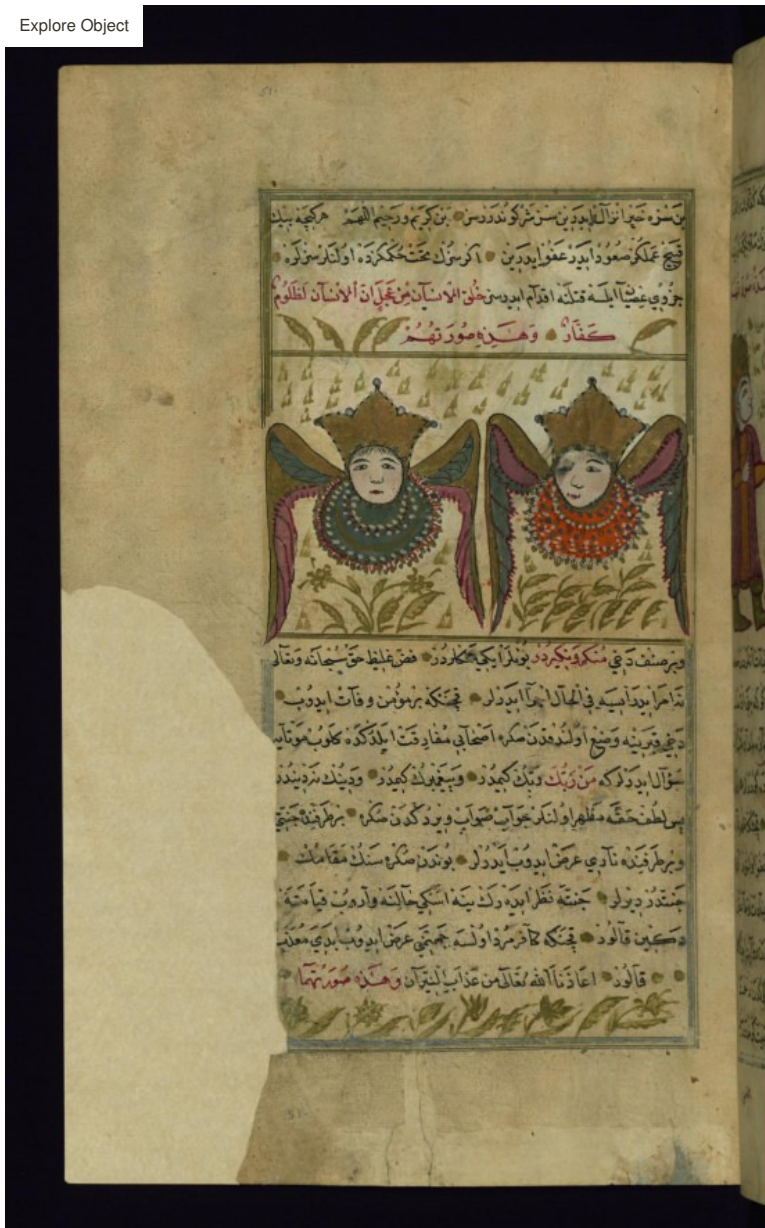 Explore Object
بن سزه خيرانزال ايدرين سز شر كوندررسز بن كريم و رحيم اللهم هركيجه بنك
قبيح عملكز صعود ايدر عفو ايدرين اكر سزك تحت حكمكزده اولنلر سزلره
جزوي عصيان ايلسه قتلنه اقدام ايدرسز خلق الانسان من عجل ان الانسان لظلوم
كفار وهذه صورتهم
وبر صنف دخي منكر ونكيردر بونلر ايكي فض غليظ حق سبحانه وتعالى
نه امر ايدرايسه في الحال اجرا ايدرلر قچنكه بر مؤمن وفات ايدوب
دخي قبرينه وضع اولندقدن صكره اصحابي مفارقت ايلدكده كلوب موتايه
سؤال ايدرلر كه من ربك ربك كيمدر وپيغمبرك كيمدر ودينك نه ديندر
پس لطف حقه مظهر اولنلر جواب صواب ويردكدن صكره بر طرفنده جنتي
وبر طرفنده ناري عرض ايدوب ايدرلر بوندن صكره سنك مقامك
جنتدر ديرلر جنته نظر ايده رك ينه اسكي حالنه واروب قيامته
دكين قالور قچنكه كافر مرد اولسه جهنمي عرض ايدوب ابدي معذب
قالور اعاذنا الله تعالى من عذاب النيران وهذه صورتهما